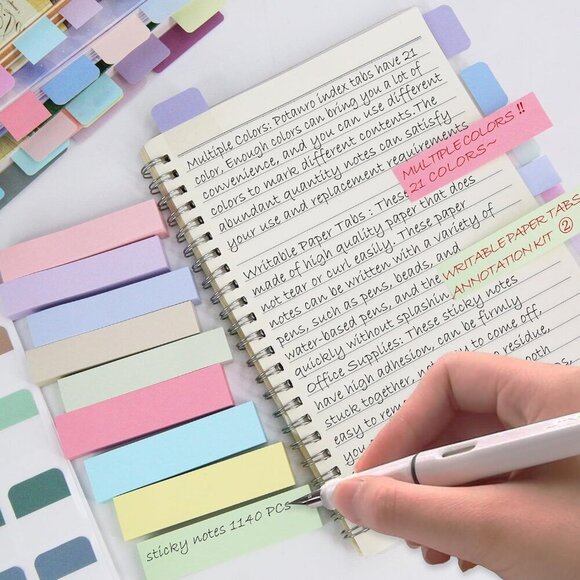 Multiple Colors: Potanro index tabs have 21
color. Enough colors can bring you a lot of
convenience, and you can use different
colors to mark different contents. The
abundant quantity notes can satisfy
your use and replacement requirements
MULTIPLE COLORS !!
21 COLORS~
Writable Paper Tabs : These
made of high quality paper that does
not tear or curl easily. These paper
notes can be written with a variety of
pens, such as pens, beads, and
water-based pens, and the
quickly without splashin
WRITABLE PAPER TABS
ANNOTATION KIT ②
Office Supplies: These sticky notes
have high adhesion, can be firmly
stuck together, not easy to come off,
easy to rem residue,
you ooth
sticky notes 1140 PCS